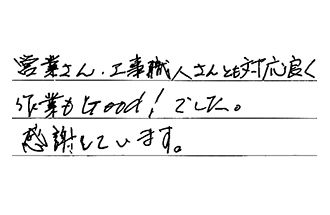 営業さん、工事職人さんとも対応良く
作業もGood!でした。
感謝しています。